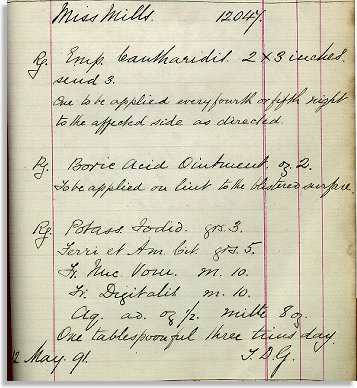 Miss Mills. 12047.
Rx. Emp. Cantharidis. 2 x 3 inches.
send 3.
One to be applied every fourth or fifth night
to the affected side as directed.
Rx. Boric Acid Ointment. oz 2.
To be applied on lint to the blistered surface.
Rx. Potass. Iodid. grs. 3.
Ferri et Am. Cit. grs. 5.
Tr. Nuc. Vom. m. 10.
Tr. Digitalis m. 10.
Aq. ad. oz ½. mitte 8 oz.
One tablespoonful three times day.
12 May. 91. T.D.G.